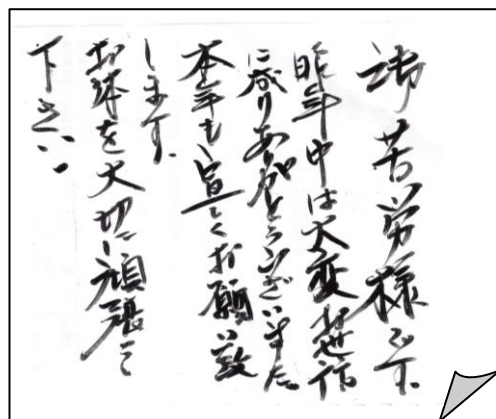 御苦労様です。
昨年中は大変お世話
に成りありがとうございました
本年も宜しくお願い致
します。
お体を大切に頑張って
下さい。